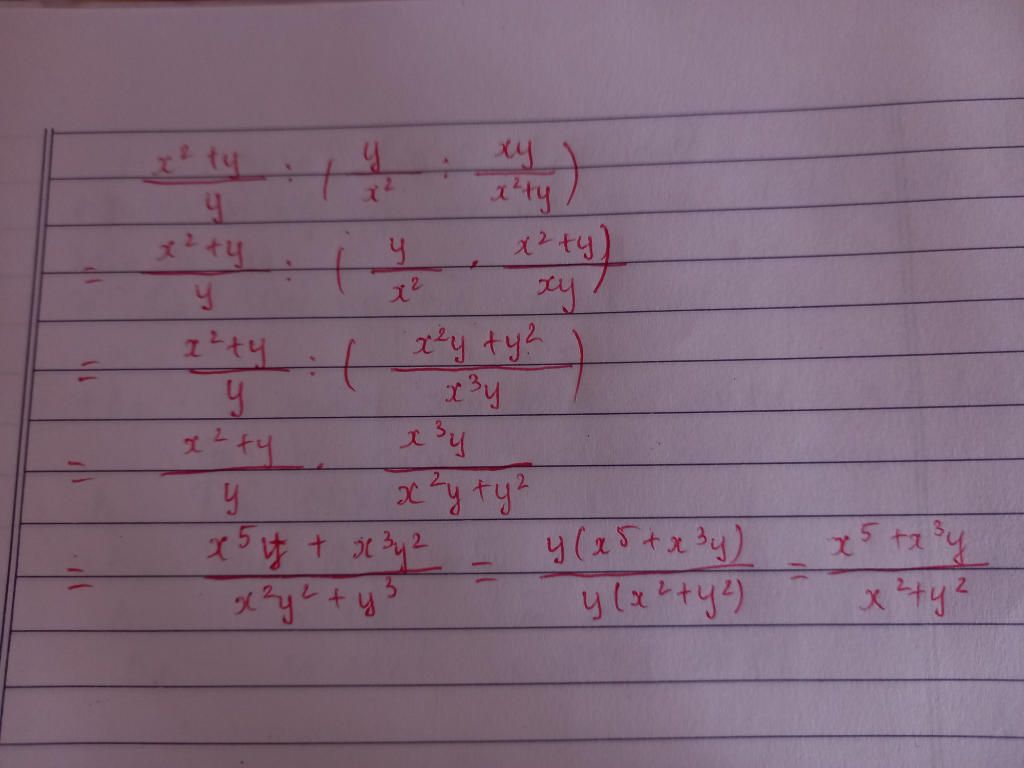 (x²+y)/y : (y/x² : xy/(x²+y))
= (x²+y)/y : (y/x² · (x²+y)/xy)
= (x²+y)/y : ((x²y+y²)/x³y)
= (x²+y)/y · x³y/(x²y+y²)
= (x⁵y + x³y²)/(x²y²+y³) = y(x⁵+x³y)/y(x²+y²) = (x⁵+x³y)/(x²+y²)